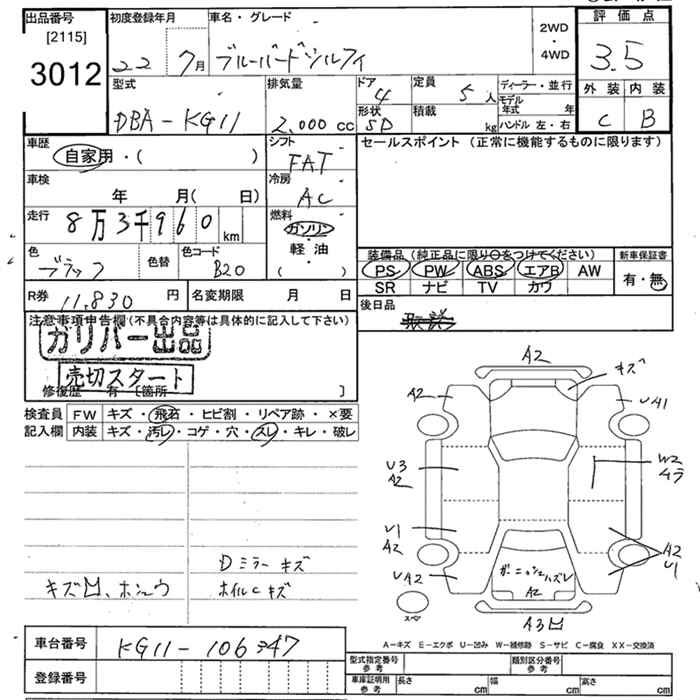 出品番号
[2115]
3012
初度登録年月
22 7月
車名・グレード
ブルーバードシルフィ
2WD
・
4WD
評価点
3.5
型式
DBA-KG11
排気量
2.000 cc
ドア
4
形状
SD
定員
5人
積載
kg
ディーラー・並行
モデル年式 年
ハンドル 左・右
外装 内装
C B
車歴
自家用・( )
車検
年 月( 日)
走行
8万3千960 km
色
ブラック
色替
色コード
B20
シフト
FAT
冷房
AC
燃料
ガソリン
・
軽・油
( )
セールスポイント(正常に機能するものに限ります)
装備品(純正品に限り○をつけてください)
PS PW ABS エアB AW
SR ナビ TV カワ
新車保証書
有・無
R券 11,830 円
名変期限 月 日
後日品
注意事項申告欄(不具合内容等は具体的に記入して下さい)
ガリバー出品
売切スタート
修復歴 有 [箇所 ]
検査員
記入欄
FW キズ・飛石・ヒビ割・リペア跡・×要
内装 キズ・汚レ・コゲ・穴・スレ・キレ・破レ
Dミラーキズ
キズ凹、ホシュウ
ホイルCキズ
A2
キズ
A2
UA1
U3
A2
W2
ムラ
U1
A2
A2
U1
UA2
ガーニッシュハズレ
A2
スペア
A3凹
A-キズ E-エクボ U-凹み W-補修跡 S-サビ C-腐食 XX-交換済
車台番号 KG11-106347
登録番号
型式指定番号
参考
類別区分番号
参考
車庫証明用
参考
長さ cm
幅 cm
高さ cm